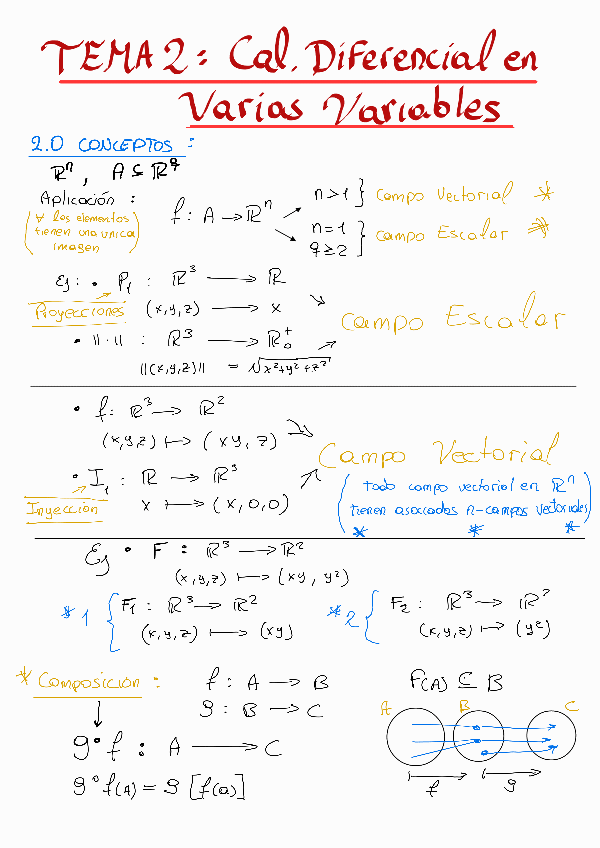 TEMA 2: Cal. Diferencial en
Varias Variables
2.0 CONCEPTOS:
ℝⁿ, A ⊆ ℝ^q
Aplicación:
(∀ los elementos
tienen una unica
imagen)
f: A → ℝⁿ
n>1 } Campo Vectorial *
n=1
q≥2 } Campo Escalar *
Ej: • P₁ : ℝ³ → ℝ
Proyecciones (x,y,z) → x
• ||·|| : ℝ³ → ℝ₀⁺
||(x,y,z)|| = √x²+y²+z²
Campo Escalar
• f: ℝ³ → ℝ²
(x,y,z) ↦ (xy, z)
• I₁ : ℝ → ℝ³
Inyección x ↦ (x,0,0)
Campo Vectorial
(todo campo vectorial en ℝⁿ
tienen asociados n-campos vectoriales)
* * *
Ej • F : ℝ³ → ℝ²
(x,y,z) ↦ (xy, y²)
*1 { F₁ : ℝ³ → ℝ²
(x,y,z) ↦ (xy)
*2 { F₂ : ℝ³ → ℝ²
(x,y,z) ↦ (y²)
* Composición :
f : A → B
g : B → C
F(A) ⊆ B
g∘f : A → C
g∘f(A) = g[f(a)]
A B C
f g